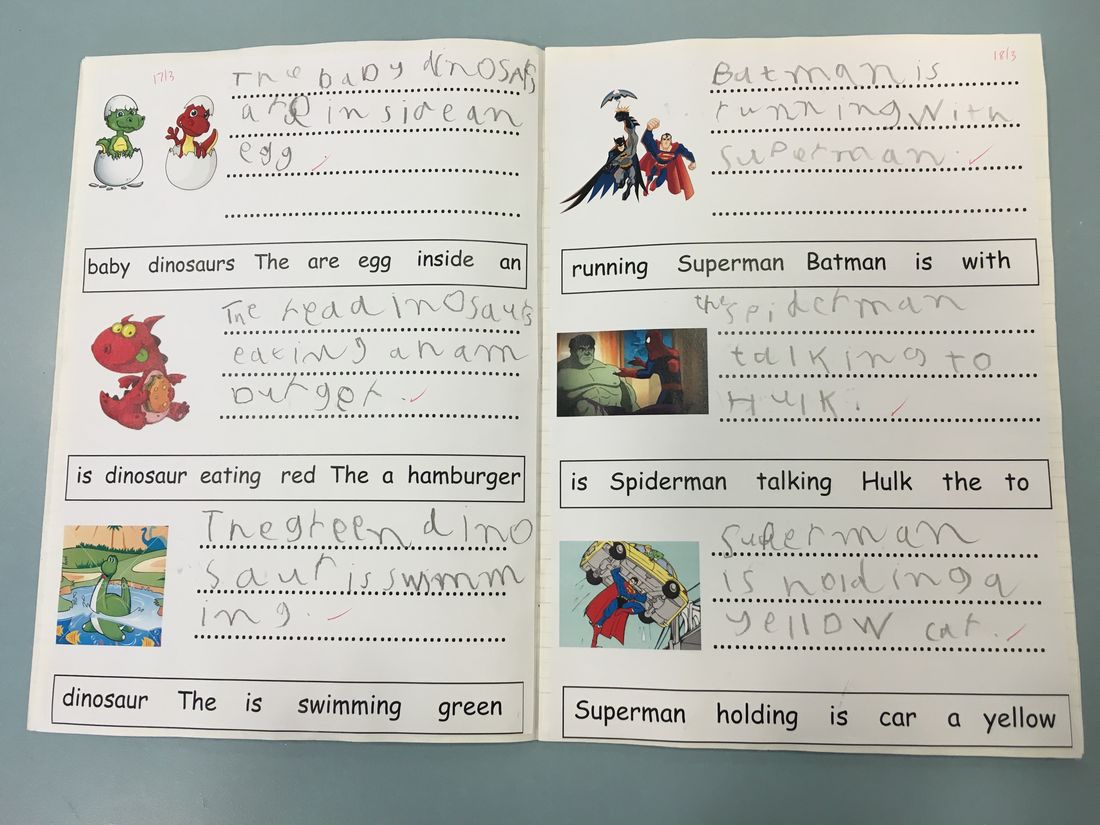 17/3
The baby dinosaurs
are inside an
egg.
baby dinosaurs The are egg inside an
The red dinosaurs
eating a ham
burger.
is dinosaur eating red The a hamburger
The green dino
saur is swimm
ing.
dinosaur The is swimming green
18/3
Batman is
running with
Superman.
running Superman Batman is with
the Spiderman
talking to
Hulk.
is Spiderman talking Hulk the to
Superman
is holding a
yellow car.
Superman holding is car a yellow